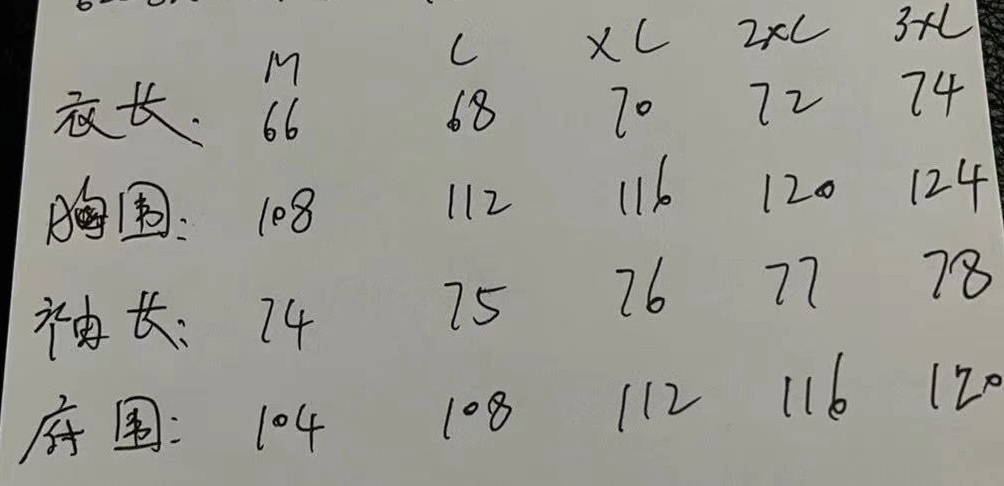 M L XL 2XL 3XL
衣长: 66 68 70 72 74
胸围: 108 112 116 120 124
袖长: 74 75 76 77 78
府围: 104 108 112 116 120